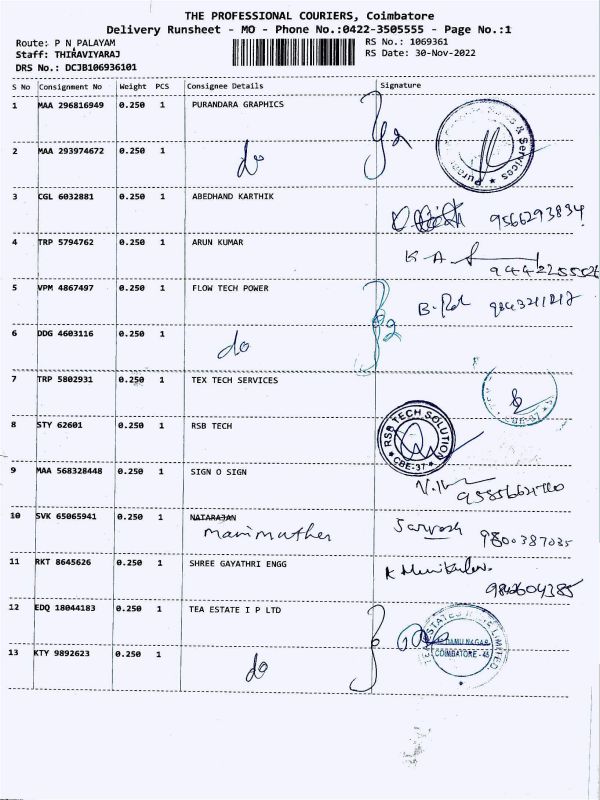 THE PROFESSIONAL COURIERS, Coimbatore
Delivery Runsheet - MO - Phone No.:0422-3505555 - Page No.:1
Route: P N PALAYAM RS No.: 1069361
Staff: THIRAVIYARAJ RS Date: 30-Nov-2022
DRS No.: DCJB106936101
S No Consignment No Weight PCS Consignee Details Signature
1 MAA 296816949 0.250 1 PURANDARA GRAPHICS 2
2 MAA 293974672 0.250 1 do
3 CGL 6032881 0.250 1 ABEDHAND KARTHIK 9566293834
4 TRP 5794762 0.250 1 ARUN KUMAR K A
5 VPM 4867497 0.250 1 FLOW TECH POWER 2
6 DDG 4603116 0.250 1 do
7 TRP 5802931 0.250 1 TEX TECH SERVICES
8 STY 62601 0.250 1 RSB TECH RSB TECH SOLUTION CBE-37
9 MAA 568328448 0.250 1 SIGN O SIGN
10 SVK 65065941 0.250 1 NATARAJAN
Marimuthu
11 RKT 8645626 0.250 1 SHREE GAYATHRI ENGG 9842604385
12 EDQ 18044183 0.250 1 TEA ESTATE I P LTD COIMBATORE - 45
13 KTY 9892623 0.250 1 do